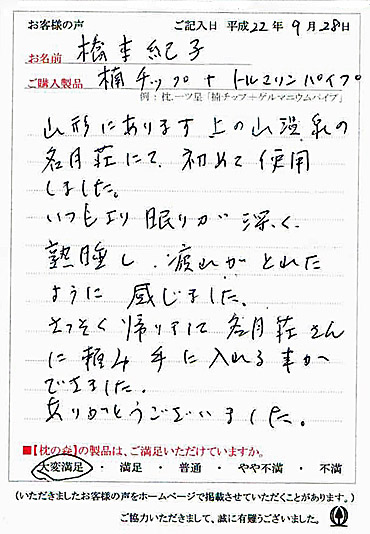 お客様の声 ご記入日 平成22年 9月28日
お名前 橋本紀子
ご購入製品 楠チップ+トルマリンパイプ
例：枕.一ツ星「楠チップ+ゲルマニウムパイプ」
山形にあります上の山温泉の
名月荘にて、初めて使用
しました。
いつもより眠りが深く、
熟睡し、疲れがとれた
ように感じました。
さっそく帰りまして名月荘さん
に頼み手に入れる事が
できました。
ありがとうございました。
■【枕の森】の製品は、ご満足いただけていますか。
大変満足 ・ 満足 ・ 普通 ・ やや不満 ・ 不満
(いただきましたお客様の声をホームページで掲載させていただくことがあります。)
ご協力いただきまして、誠に有難うございました。